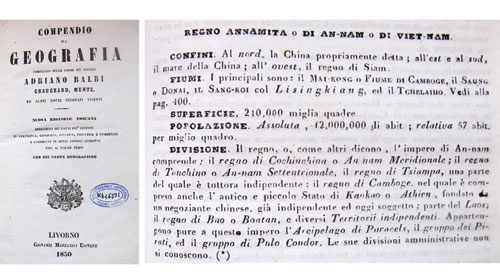 COMPENDIO
DI
GEOGRAFIA
ADRIANO BALBI
NUOVA EDIZIONE TOSCANA
CON SEI CARTE GEOGRAFICHE
LIVORNO
1850
REGNO ANNAMITA o DI AN-NAM o DI VIET-NAM.
CONFINI. Al nord, la China propriamente detta; all'est e al sud,
il mare della China; all'ovest, il regno di Siam.
FIUMI. I principali sono: il MAI-KONG o FIUME DI CAMBOGE, il SAUNG
o DONAI, IL SANG-KOI col Lisingkiang, ed il TCHELAIHO. Vedi alla
pag. 400.
SUPERFICIE, 210,000 miglia quadre.
POPOLAZIONE. Assoluta, 12,000,000 di abit; relativa 57 abit.
per miglio quadro.
DIVISIONE. Il regno, o, come altri dicono, l'impero di An-nam
comprende: il regno di Cochinchina o An-nam Meridionale; il regno
di Tonchino o An-nam Settentrionale, il regno di Tsiampa, una
parte del quale è tuttora indipendente; il regno di Camboge, nel quale è com-
preso anche l'antico e piccolo Stato di Kankao o Athien, fondato da
un negoziante chinese, già indipendente ed oggi soggetto; parte del Laos;
il regno di Bao o Boatan, e diversi Territorii indipendenti. Apparten-
gono pure a questo impero l'Arcipelago di Paracels, il gruppo dei Pi-
rati, ed il gruppo di Pulo Condor. Le sue divisioni amministrative non
si conoscono. (*)